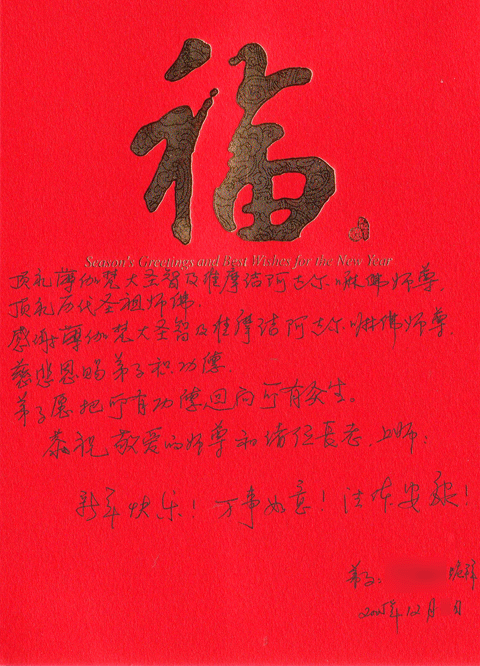 福
Season's Greetings and Best Wishes for the New Year
顶礼薄伽梵大圣智及维摩诘阿吉尔·啉佛师尊
顶礼历代圣祖师佛.
感谢薄伽梵大圣智及维摩诘阿吉尔·啉佛师尊
慈悲恩赐弟子和功德.
弟子愿把所有功德回向所有众生。
恭祝敬爱的师尊和诸位長老、上师:
新年快乐! 万事如意! 法体安康!
弟子:
2005年12月 日